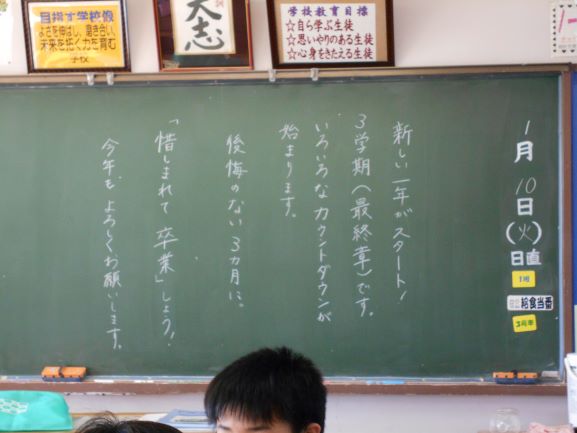 目指す学校像
よさを伸ばし、磨き合い、
未来を拓く力を育む
学校
大志
学校教育目標
☆自ら学ぶ生徒
☆思いやりのある生徒
☆心身をきたえる生徒
1月10日(火)
日直
1班
給食当番
新しい一年がスタート!
3学期(最終章)です。
いろいろなカウントダウンが
始まります。
後悔のない3カ月に。
「惜しまれて卒業」しよう!
今年も よろしくお願いします。